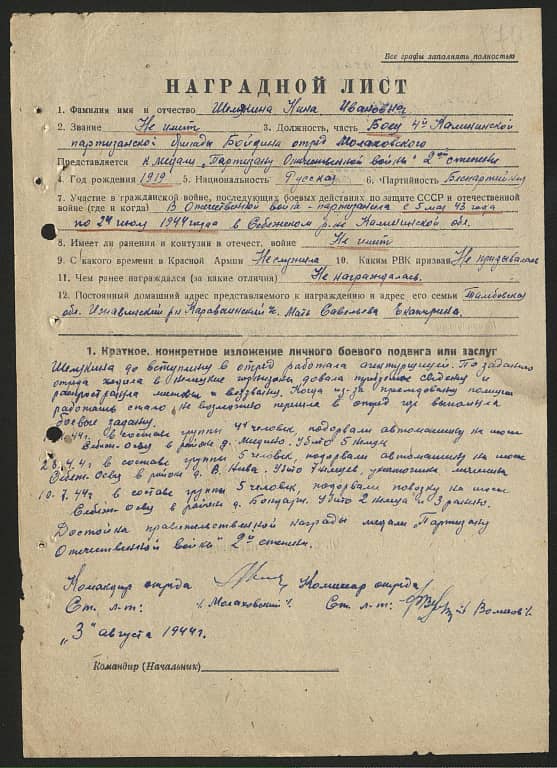 Все графы заполнять полностью
НАГРАДНОЙ ЛИСТ
1. Фамилия имя и отчество Шемякина Нина Ивановна
2. Звание Не имеет 3. Должность, часть Боец 4й Калининской
партизанской бригады Бойдина отряд Молаховского
Представляется к медали „Партизану Отечественной войны" 2ой степени
4. Год рождения 1919 5. Национальность Русская 6. Партийность Безпартийная
7. Участие в гражданской войне, последующих боевых действиях по защите СССР и отечественной
войне (где и когда) В Отечественной войне - партизанка с 5 мая 43 года
по 24 июлу 1944 года в Себежском р-не Калининской обл.
8. Имеет ли ранения и контузии в отечест. войне Не имеет
9. С какого времени в Красной Армии Не служила 10. Каким РВК призван Не призывалась
11. Чем ранее награждался (за какие отличия) Не награждалась.
12. Постоянный домашний адрес представляемого к награждению и адрес его семьи Тамбовская
обл. р-н Мать Савельева Екатерина.
1. Краткое, конкретное изложение личного боевого подвига или заслуг
Шемякина до вступления в отряд работала агентурщицей. По заданию
отряда ходила в Немецкие гарнизоны давала сведения и
распространяла листовки и воззвания. Когда из-за полиции
работать стало не возможно перешла в отряд где выполняла
боевые задания.
44г. в составе группы 4 человек, подорвали автомашину на шоссе
Себеж-Освея в районе д. Убито 5 немцев
4г. в составе группы 5 человек, подорвали автомашину на шоссе
Себеж-Освея в районе д. Нива. Убито 7 немцев, уничтожена машина
10.7.44г. в составе группы 5 человек, подорвали повозку на шоссе
Себеж-Освея в районе д. Бондари. Убито 2 немца и 3 ранено.
Достойна правительственной награды медали „Партизану
Отечественной войны" 2ой степени.
Командир отряда Комиссар отряда
Ст. л-т: /Молаховский/. Ст. л-т: /Волков/.
„3" августа 1944г.
Командир (Начальник)